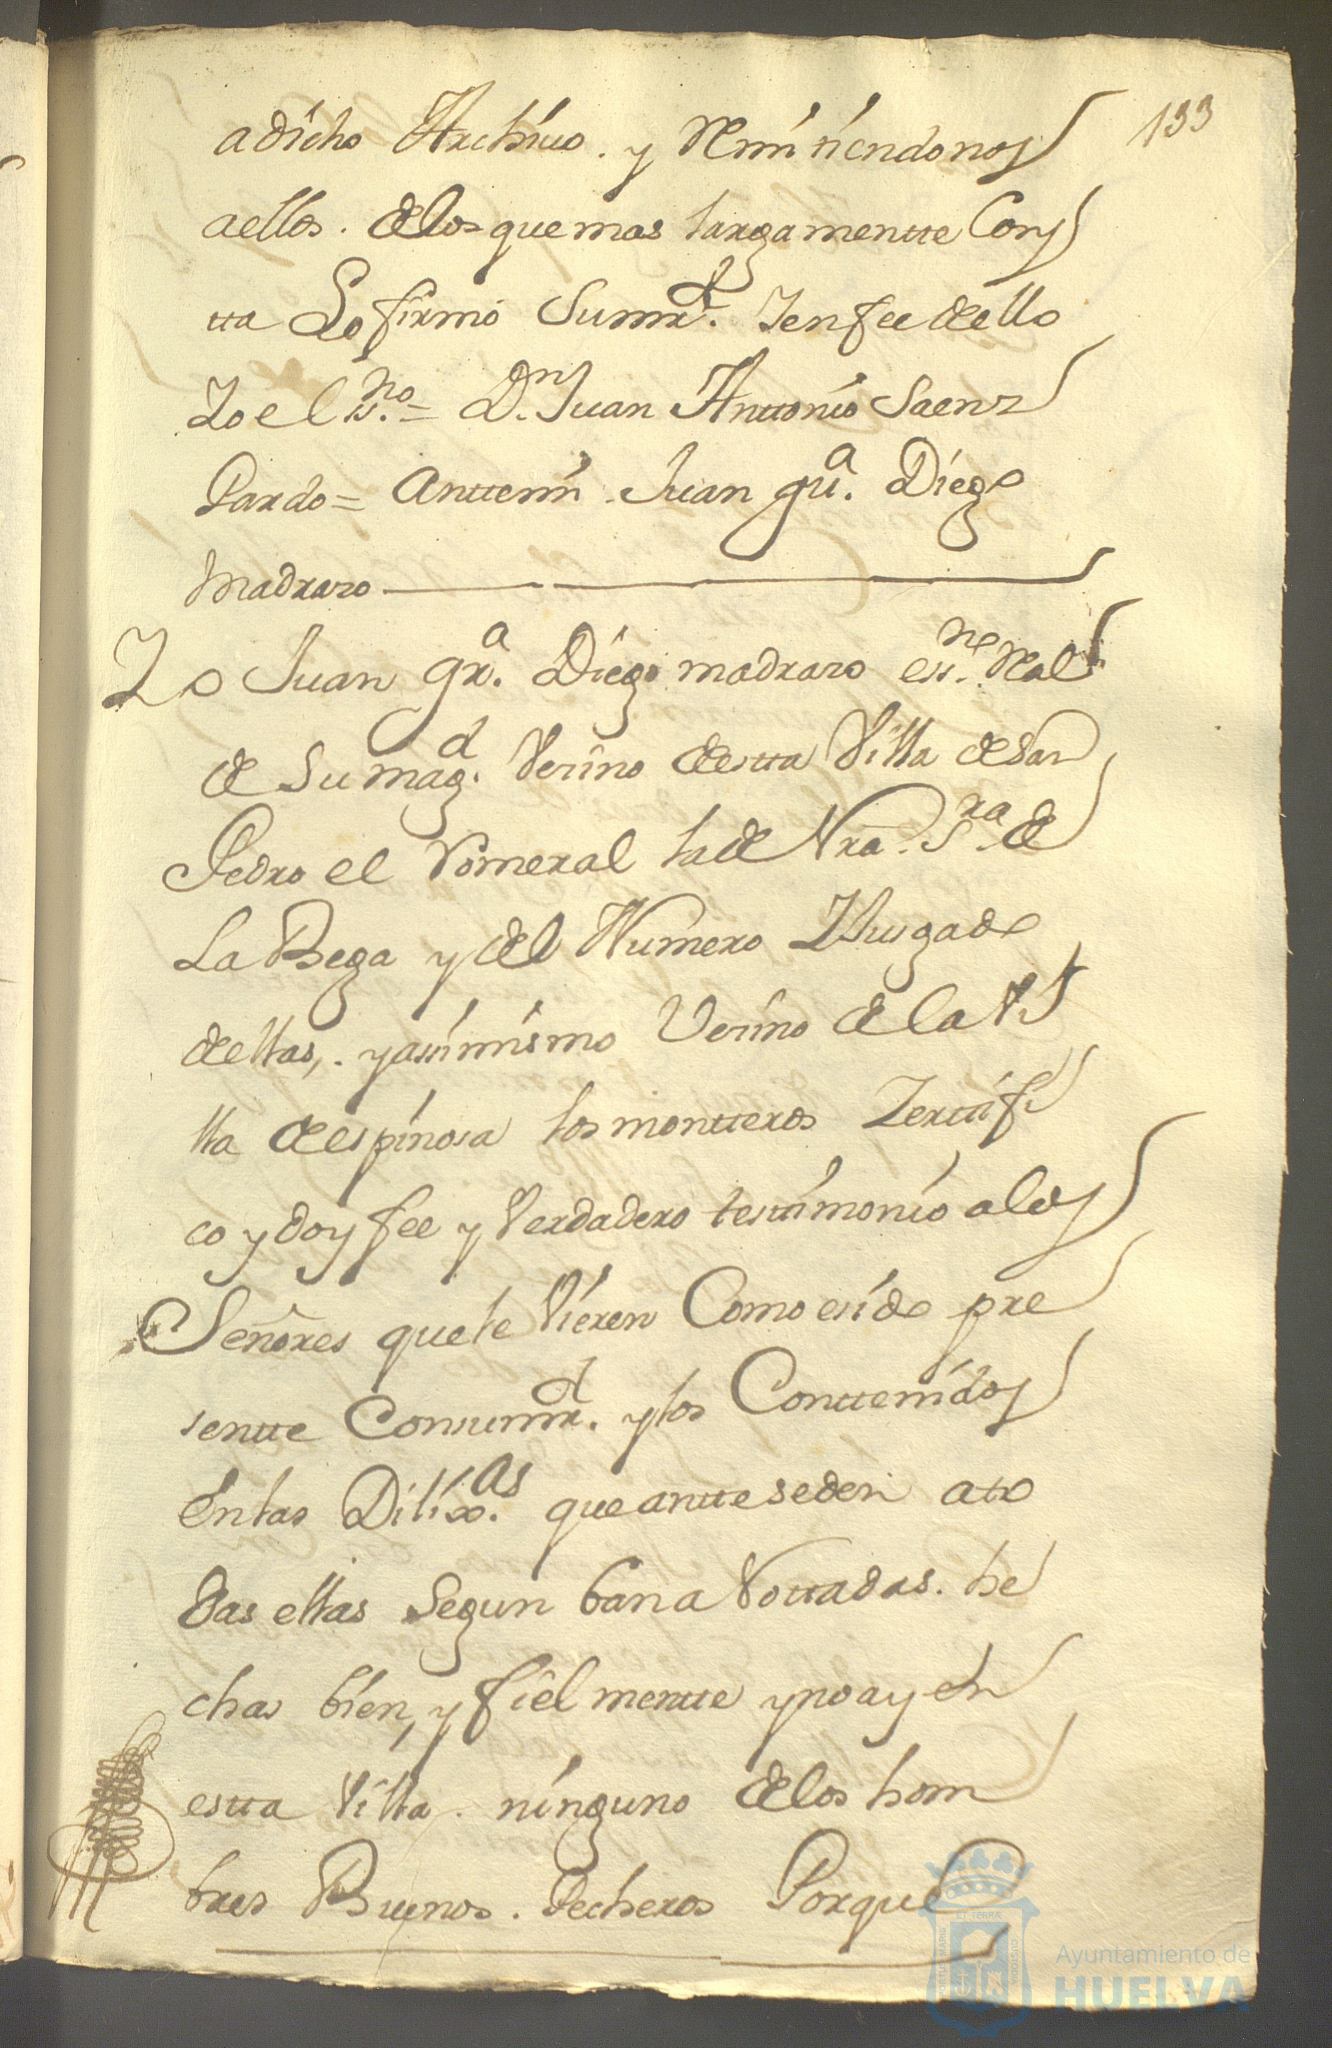 133
a dicho Archivo. y Remitiendonos
a ellos. de los que mas largamentte Cons
tta Lo firmó Su mrd. Y en fee de ello
Yo el ssno. = Dn. Juan Anttonio Saenz
Pardo = Anttemi. Juan gra. Diego
Madrazo
Yo Juan gra. Diego madrazo essno. Real
de Su magd. Vezino de estta Villa de San
Pedro el Romeral la de Nra. Sra. de
La Bega y del Numero Y Jusgado
de ellas, y assimismo Vezino de la Vi
lla de espinosa los montteros Zerttifi
co y doy fee y Verdadero testtimonio a los
Señores que le Vieren Como e sido pre
sentte Con su mrd. y los Conttenidos
En las Dilixas. que antteseden a to
das ellas Segun ban a Nottadas. he
chas bien, y fielmentte y no ay en
estta Villa. ninguno de los hom
bres Buenos. Pecheros Porque
Ayuntamiento de
HUELVA